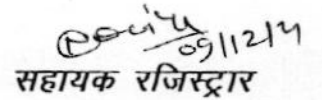 09/12/21
सहायक रजिस्ट्रार